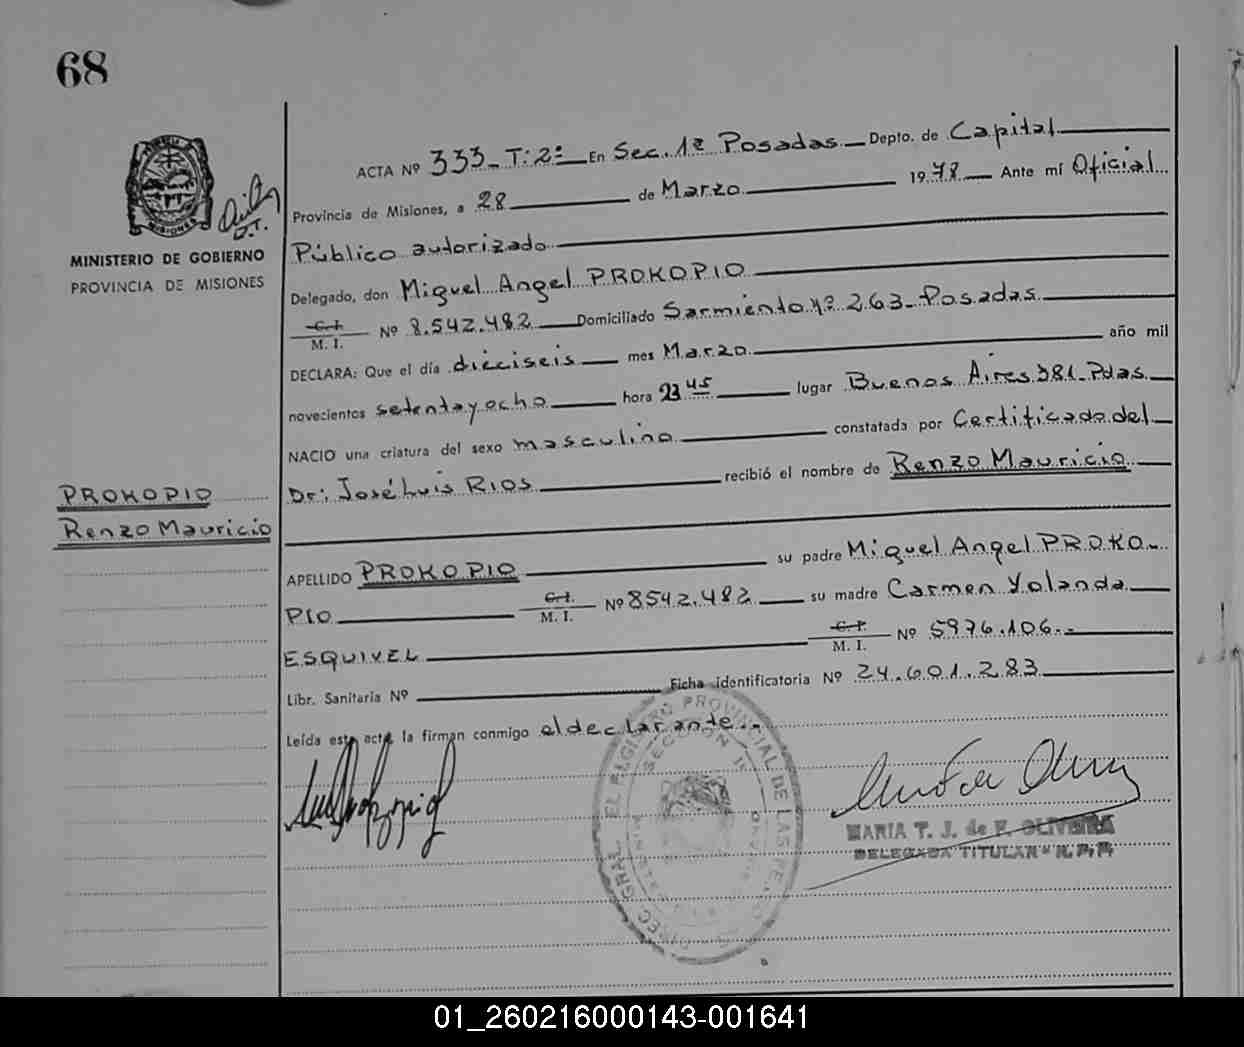 68
ACTA Nº 333- T: 2º- En Sec. 1ª Posadas - Depto. de Capital
Provincia de Misiones, a 28 de Marzo 1978 Ante mí Oficial
Público autorizado
MINISTERIO DE GOBIERNO
PROVINCIA DE MISIONES
Delegado, don Miguel Angel PROKOPIO
C.I. M. I. Nº 8.542.482 Domiciliado Sarmiento nº 263- Posadas
DECLARA: Que el día dieciseis mes Marzo año mil
novecientos setenta y ocho hora 23 45 lugar Buenos Aires 381- Pdas
NACIO una criatura del sexo masculino constatada por Certificado del
Dr: José Luis RIOS recibió el nombre de Renzo Mauricio
PROKOPIO
Renzo Mauricio
APELLIDO PROKOPIO su padre Miguel Angel PROKO-
PIO C.I. M. I. Nº 8542.482 su madre Carmen Yolanda
ESQUIVEL C.I. M. I. Nº 5976.106.-
Libr. Sanitaria Nº Ficha identificatoria Nº 24.601.283
Leída esta acta, la firman conmigo el declarante.-
DIREC. GRAL. EL REGISTRO PROVINCIAL DE LAS PERSONAS
SECCION 1ª
MARIA T. J. de F. OLIVEIRA
DELEGADA TITULAR
01_260216000143-001641